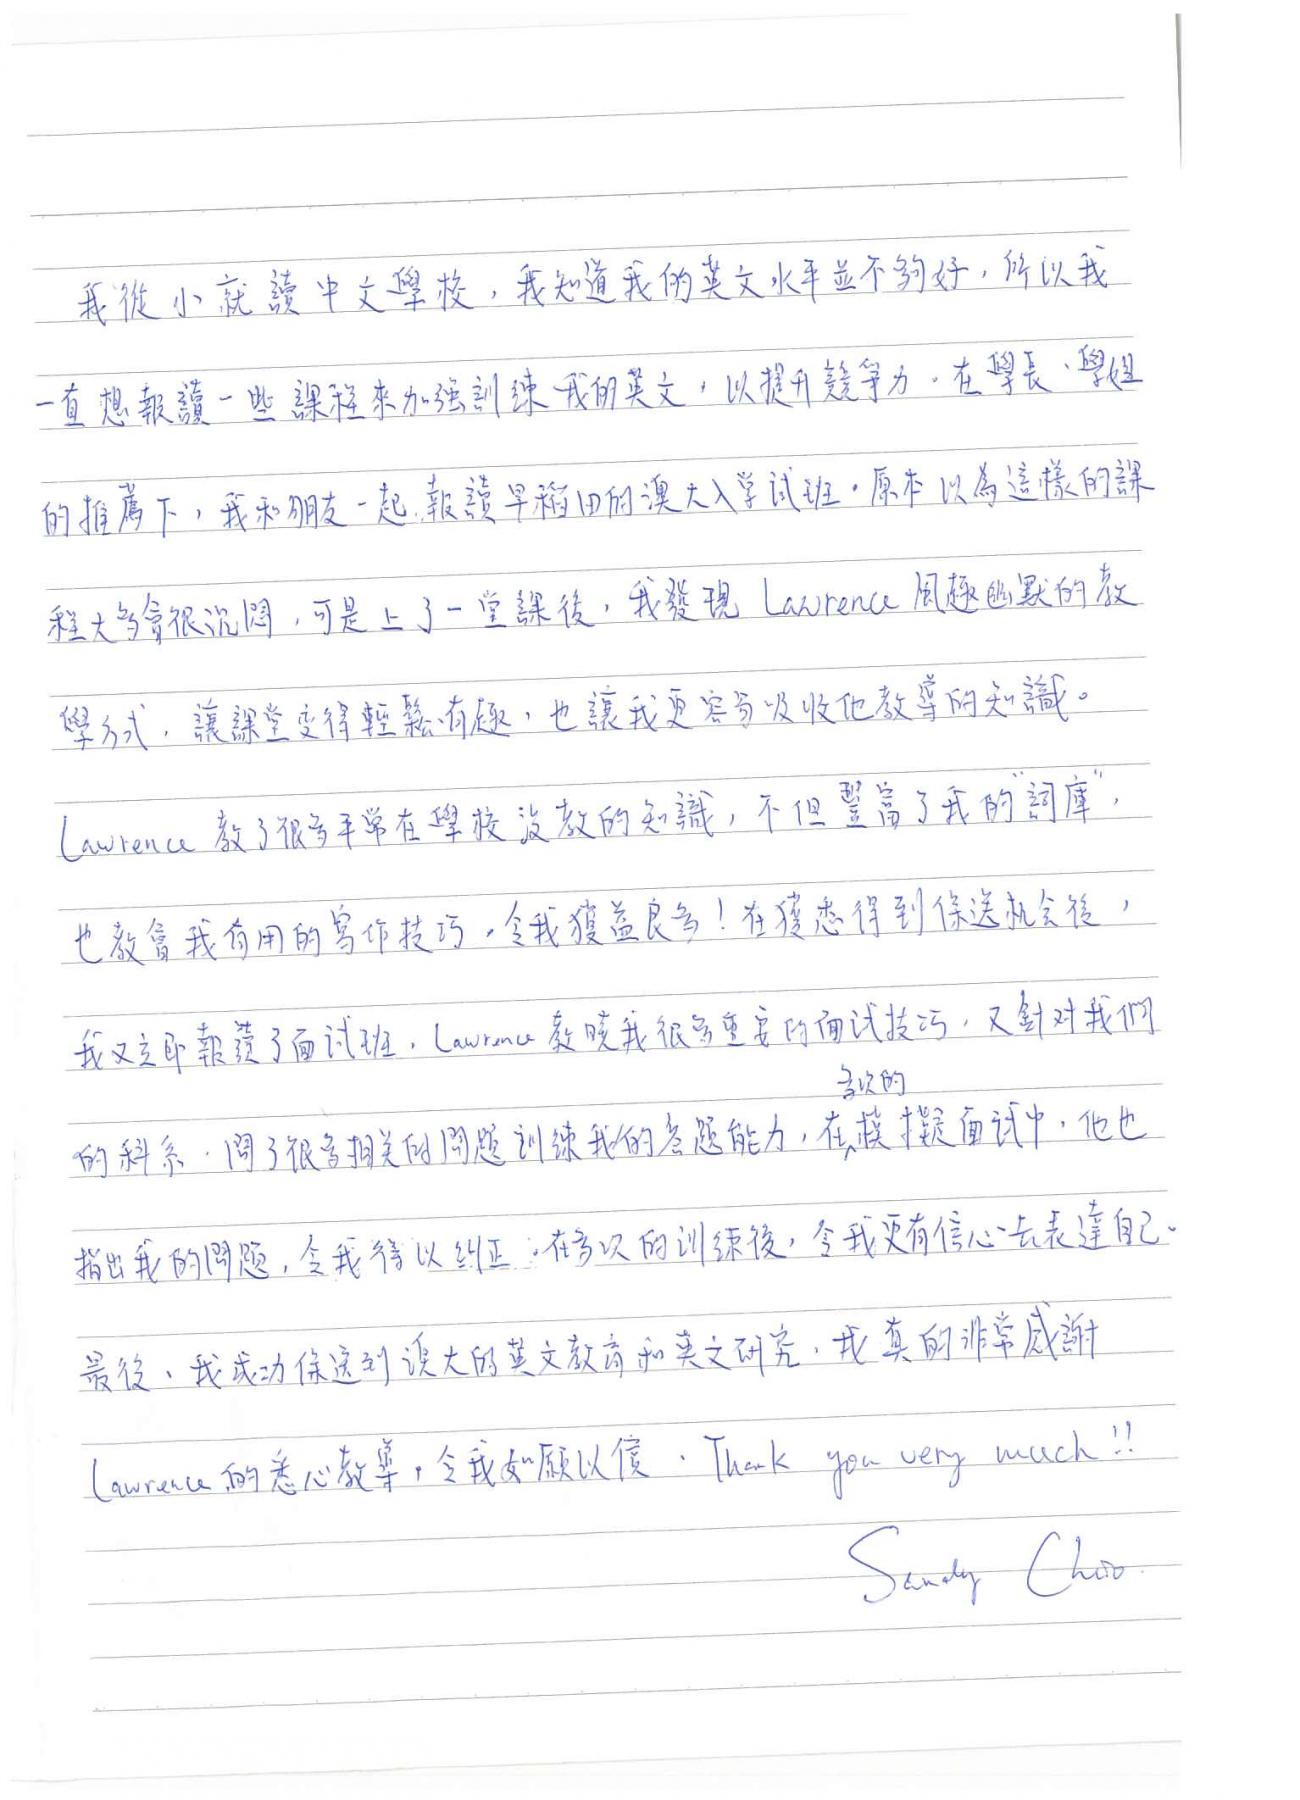 我從小就讀中文學校，我知道我的英文水平並不夠好，所以我
一直想報讀一些課程來加強訓練我的英文，以提升競爭力。在學長、學姐
的推薦下，我和朋友一起報讀早稻田的澳大入学試班。原本以為這樣的課
程大多會很沉悶，可是上了一堂課後，我發現 Lawrence 風趣幽默的教
學方式，讓課堂变得輕鬆有趣，也讓我更容易吸收他教導的知識。
Lawrence 教了很多平常在學校沒教的知識，不但豐富了我的"詞庫"，
也教會我有用的寫作技巧，令我獲益良多！在獲悉得到保送机会後，
我又立即報讀了面試班，Lawrence 教曉我很多重要的面試技巧，又針對我們
的科系，問了很多相关的問題訓練我的答題能力，在多次的模擬面試中，他也
指出我的問題，令我得以糾正。在多次的訓練後，令我更有信心去表達自己。
最後，我成功保送到澳大的英文教育和英文研究，我真的非常感謝
Lawrence 的悉心教導，令我如願以償。Thank you very much!!
Sandy Choo.